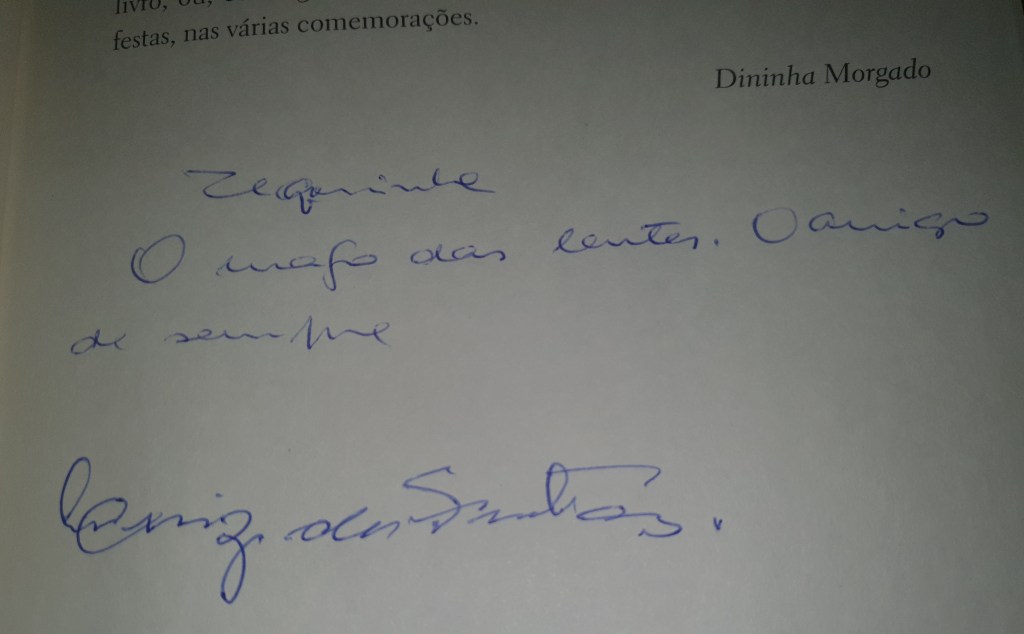 livro, ou,
festas, nas várias comemorações.
Dininha Morgado
Zequinha
O mago das lentes. O amigo
de sempre
dos Santos.